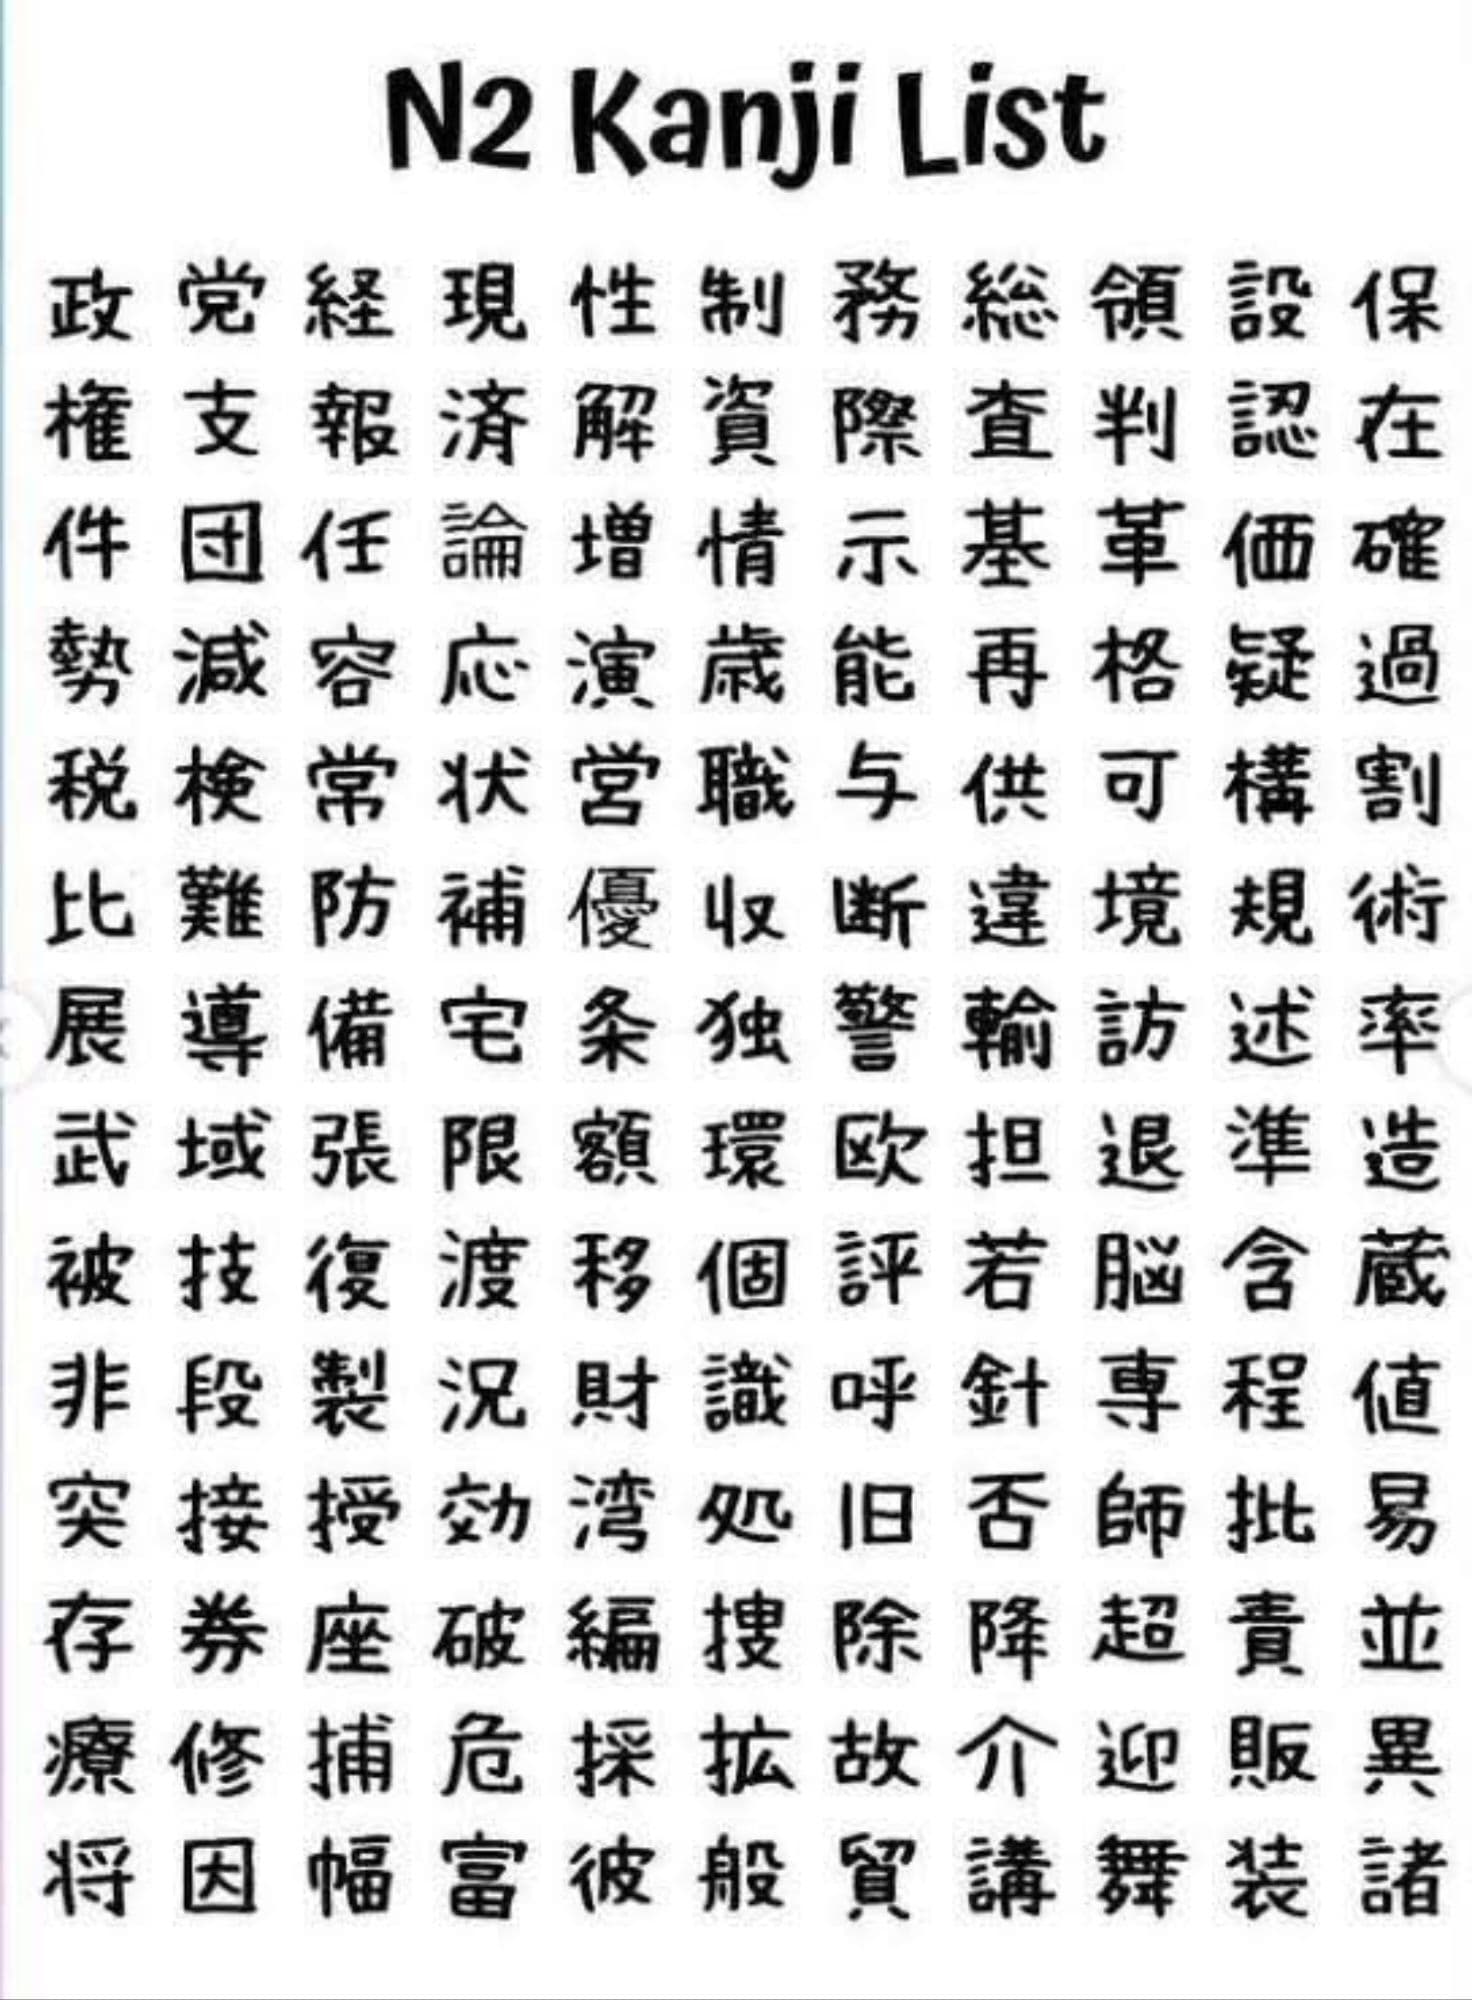 N2 Kanji List
政 党 経 現 性 制 務 総 領 設 保
権 支 報 済 解 資 際 査 判 認 在
件 団 任 論 増 情 示 基 革 価 確
勢 減 容 応 演 歳 能 再 格 疑 過
税 検 常 状 営 職 与 供 可 構 割
比 難 防 補 優 収 断 違 境 規 術
展 導 備 宅 条 独 警 輸 訪 述 率
武 域 張 限 額 環 欧 担 退 準 造
被 技 復 渡 移 個 評 若 脳 含 蔵
非 段 製 況 財 識 呼 針 専 程 値
突 接 授 効 湾 処 旧 否 師 批 易
存 券 座 破 編 捜 除 降 超 責 並
療 修 捕 危 採 拡 故 介 迎 販 異
将 因 幅 富 彼 般 貿 講 舞 装 諸